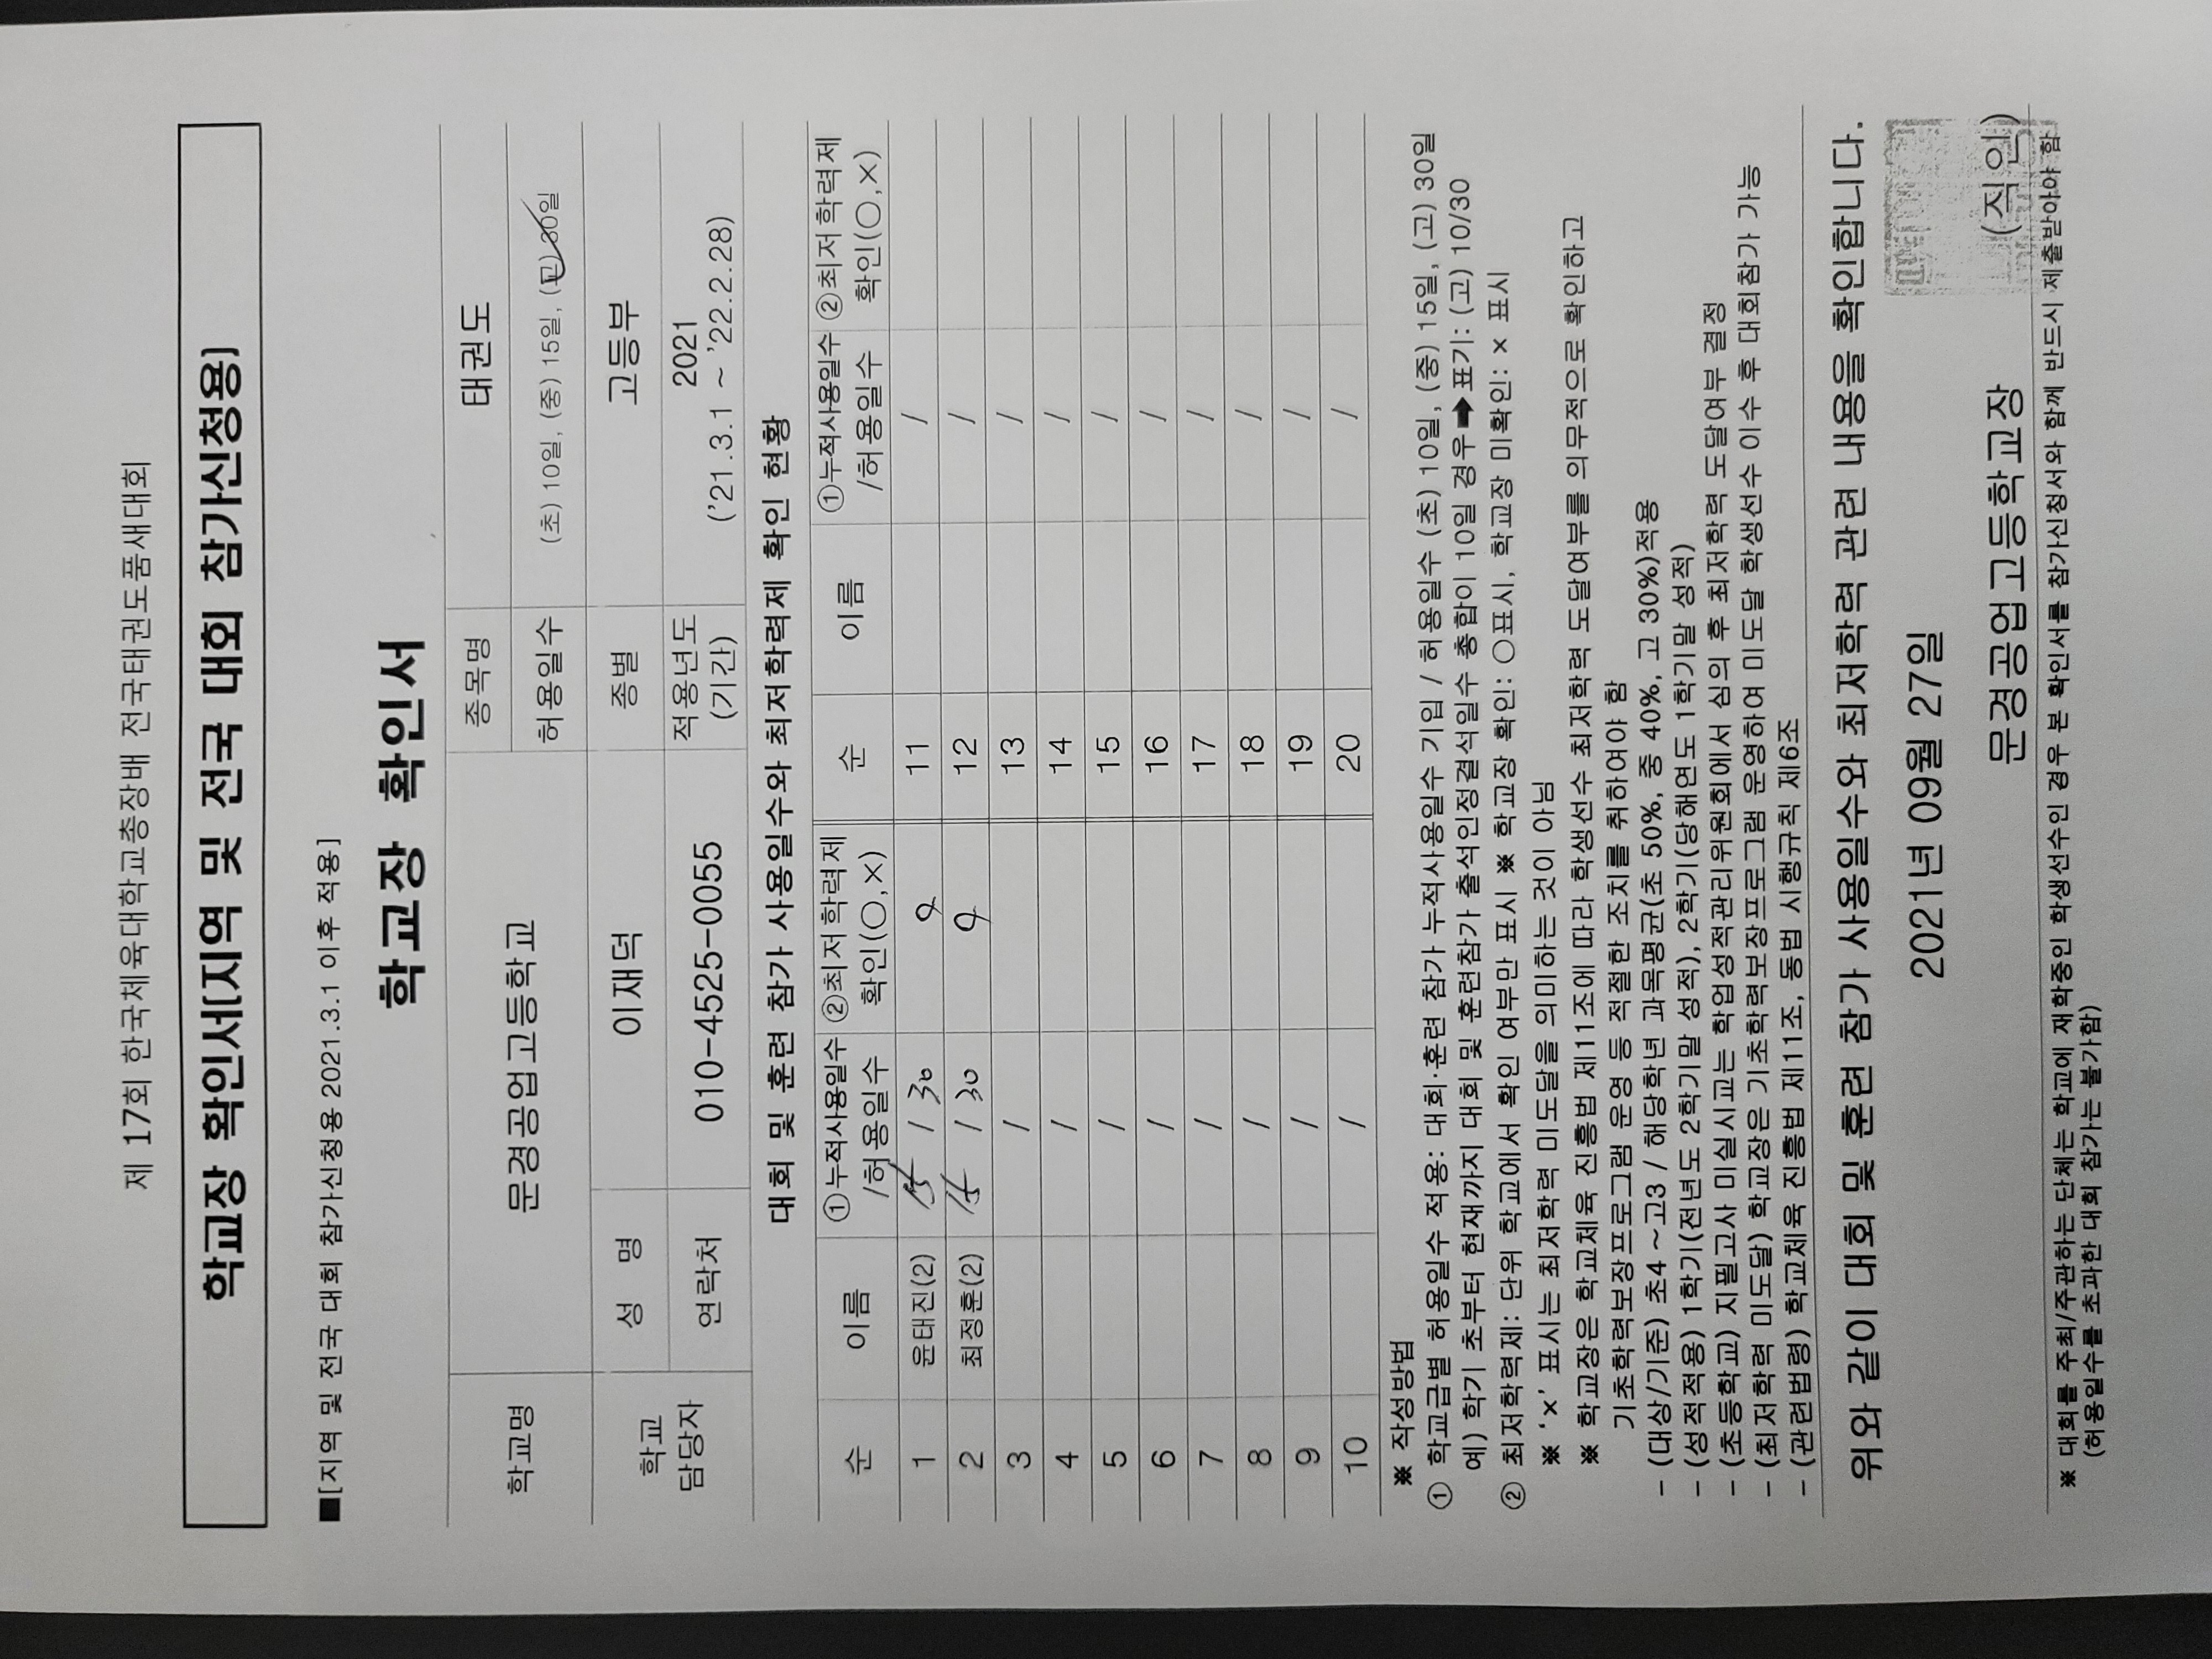 제 17회 한국체육대학교총장배 전국태권도품새대회
학교장 확인서[지역 및 전국 대회 참가신청용]
■[지역 및 전국 대회 참가신청용 2021.3.1 이후 적용]
학교장 확인서
학교명 문경공업고등학교 종목명 태권도
허용일수 (초) 10일, (중) 15일, (고) 30일
학교 담당자 성 명 이재덕 종별 고등부
연락처 010-4525-0055 적용년도 (기간) 2021 ('21.3.1 ~ '22.2.28)
대회 및 훈련 참가 사용일수와 최저학력제 확인 현황
순 이름 ①누적사용일수 /허용일수 ②최저학력제 확인(○,×) 순 이름 ①누적사용일수 /허용일수 ②최저학력제 확인(○,×)
1 윤태진(2) 15 / 30 ○ 11 /
2 최정훈(2) 15 / 30 ○ 12 /
3 / 13 /
4 / 14 /
5 / 15 /
6 / 16 /
7 / 17 /
8 / 18 /
9 / 19 /
10 / 20 /
※ 작성방법
① 학교급별 허용일수 적용: 대회·훈련 참가 누적사용일수 기입 / 허용일수 (초) 10일, (중) 15일, (고) 30일
예) 학기 초부터 현재까지 대회 및 훈련참가 출석인정결석일수 총합이 10일 경우➡표기: (고) 10/30
② 최저학력제: 단위 학교에서 확인 여부만 표시 ※ 학교장 확인: ○표시, 학교장 미확인: × 표시
※ '×' 표시는 최저학력 미도달을 의미하는 것이 아님
※ 학교장은 학교체육 진흥법 제11조에 따라 학생선수 최저학력 도달여부를 의무적으로 확인하고
기초학력보장프로그램 운영 등 적절한 조치를 취하여야 함
- (대상/기준) 초4 ~고3 / 해당학년 과목평균(초 50%, 중 40%, 고 30%)적용
- (성적적용) 1학기(전년도 2학기말 성적), 2학기(당해연도 1학기말 성적)
- (초등학교) 지필고사 미실시교는 학업성적관리위원회에서 심의 후 최저학력 도달여부 결정
- (최저학력 미도달) 학교장은 기초학력보장프로그램 운영하여 미도달 학생선수 이수 후 대회참가 가능
- (관련법령) 학교체육 진흥법 제11조, 동법 시행규칙 제6조
위와 같이 대회 및 훈련 참가 사용일수와 최저학력 관련 내용을 확인합니다.
2021년 09월 27일
문경공업고등학교장 (직인)
※ 대회를 주최/주관하는 단체는 학교에 재학중인 학생선수인 경우 본 확인서를 참가신청서와 함께 반드시 제출받아야 함
(허용일수를 초과한 대회 참가는 불가함)